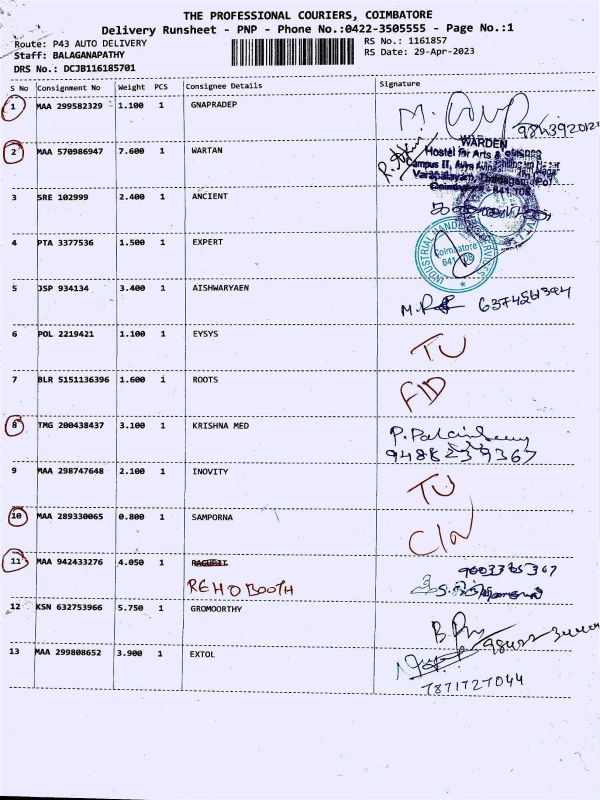 THE PROFESSIONAL COURIERS, COIMBATORE
Delivery Runsheet - PNP - Phone No.:0422-3505555 - Page No.:1
Route: P43 AUTO DELIVERY RS No.: 1161857
Staff: BALAGANAPATHY RS Date: 29-Apr-2023
DRS No.: DCJB116185701
S No Consignment No Weight PCS Consignee Details Signature
1 MAA 299582329 1.100 1 GNAPRADEP
2 MAA 570986947 7.600 1 WARTAN
WARDEN
Hostel for Arts &
Campus II,
3 SRE 102999 2.400 1 ANCIENT
Coimbatore - 641 108
4 PTA 3377536 1.500 1 EXPERT
INDUSTRIAL HANDLING SERVICES
Coimbatore
641 108
5 JSP 934134 3.400 1 AISHWARYAEN
6 POL 2219421 1.100 1 EYSYS TU
7 BLR 5151136396 1.600 1 ROOTS FID
8 TMG 200438437 3.100 1 KRISHNA MED
9488239367
9 MAA 298747648 2.100 1 INOVITY TU
10 MAA 289330065 0.800 1 SAMPORNA
11 MAA 942433276 4.050 1
REHOBOOTH
12 KSN 632753966 5.750 1 GROMOORTHY
13 MAA 299808652 3.900 1 EXTOL
7871727044